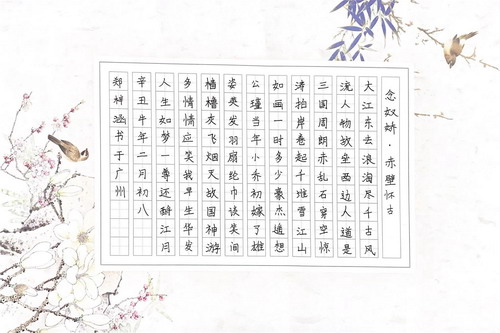 念奴娇·赤壁怀古
大江东去浪淘尽千古风
流人物故垒西边人道是
三国周朗赤乱石穿空惊
涛拍岸卷起千堆雪江山
如画一时多少豪杰遥想
公瑾当年小乔初嫁了雄
姿英发羽扇纶巾谈笑间
樯橹灰飞烟灭故国神游
多情情应笑我早生华发
人生如梦一尊还酹江月
辛丑牛年二月初八
郑梓涵书于广州